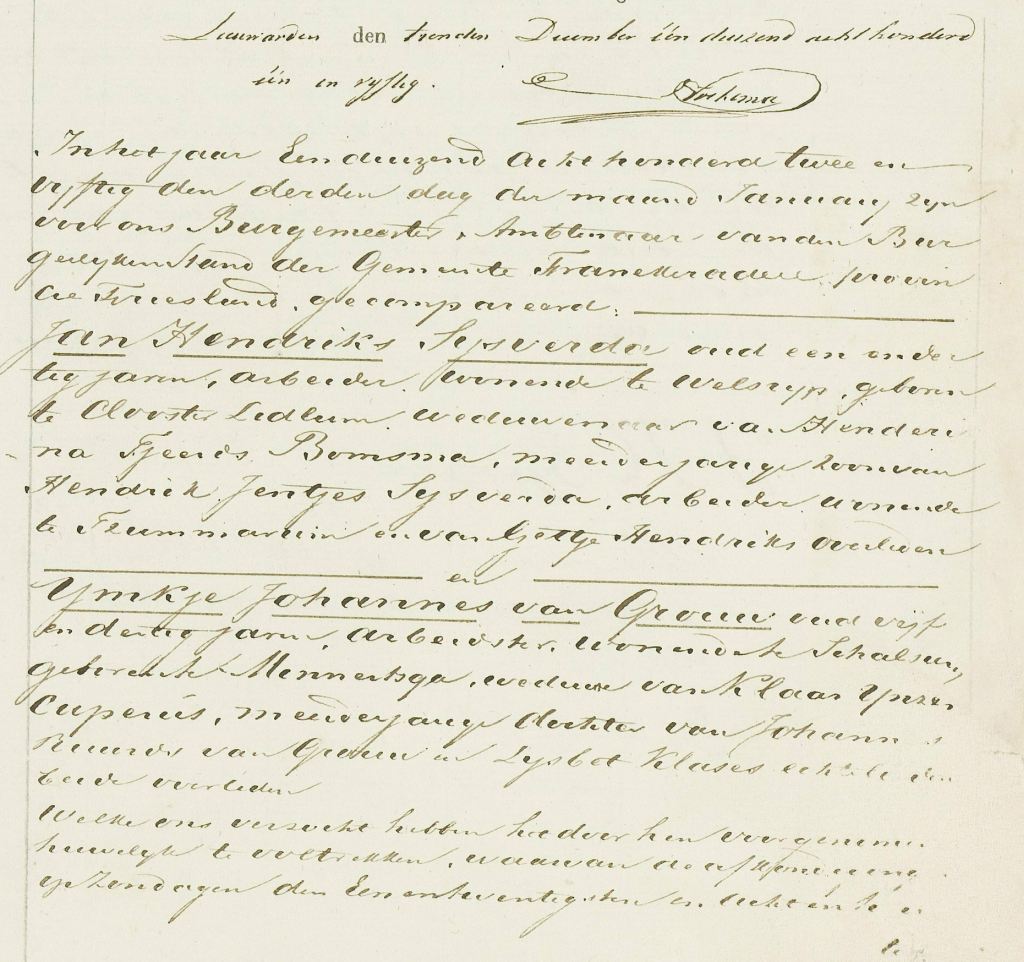 Leeuwarden den tienden December één duizend acht honderd
één en vyftig.
In het jaar Een duizend Acht honderd twee en
vyftig den derden dag der maand January zyn
voor ons Burgemeester, Ambtenaar van den Bur
gerlyken Stand der Gemeente Franekeradeel provin
cie Friesland, gecompareerd.
Jan Hendriks Sysverda oud een en der
tig jaren, arbeider, wonende te Welsryp, geboren
te Clooster Lidlum weduwenaar van Henderi
na Tjeerds Bomsma, meerderjarige zoon van
Hendrik Jentjes Sysverda, arbeider wonende
te Tzummarum en van Gettje Hendriks overleden
en
Ymkje Johannes van Grouw oud vyf
en dertig jaren, arbeidster, wonende te Schalsum,
geboren te Minnertsga, weduwe van Klaas Ypzes
Cuperus, meerderjarige dochter van Johannes
Ruurds van Grouw en Lysbet Klases echtelieden
beide overleden
Welke ons verzocht hebben het door hen voorgenomen
huwelyk te voltrekken, waarvan de afkondiging
op Zondagen den Een en twintigsten en Acht en